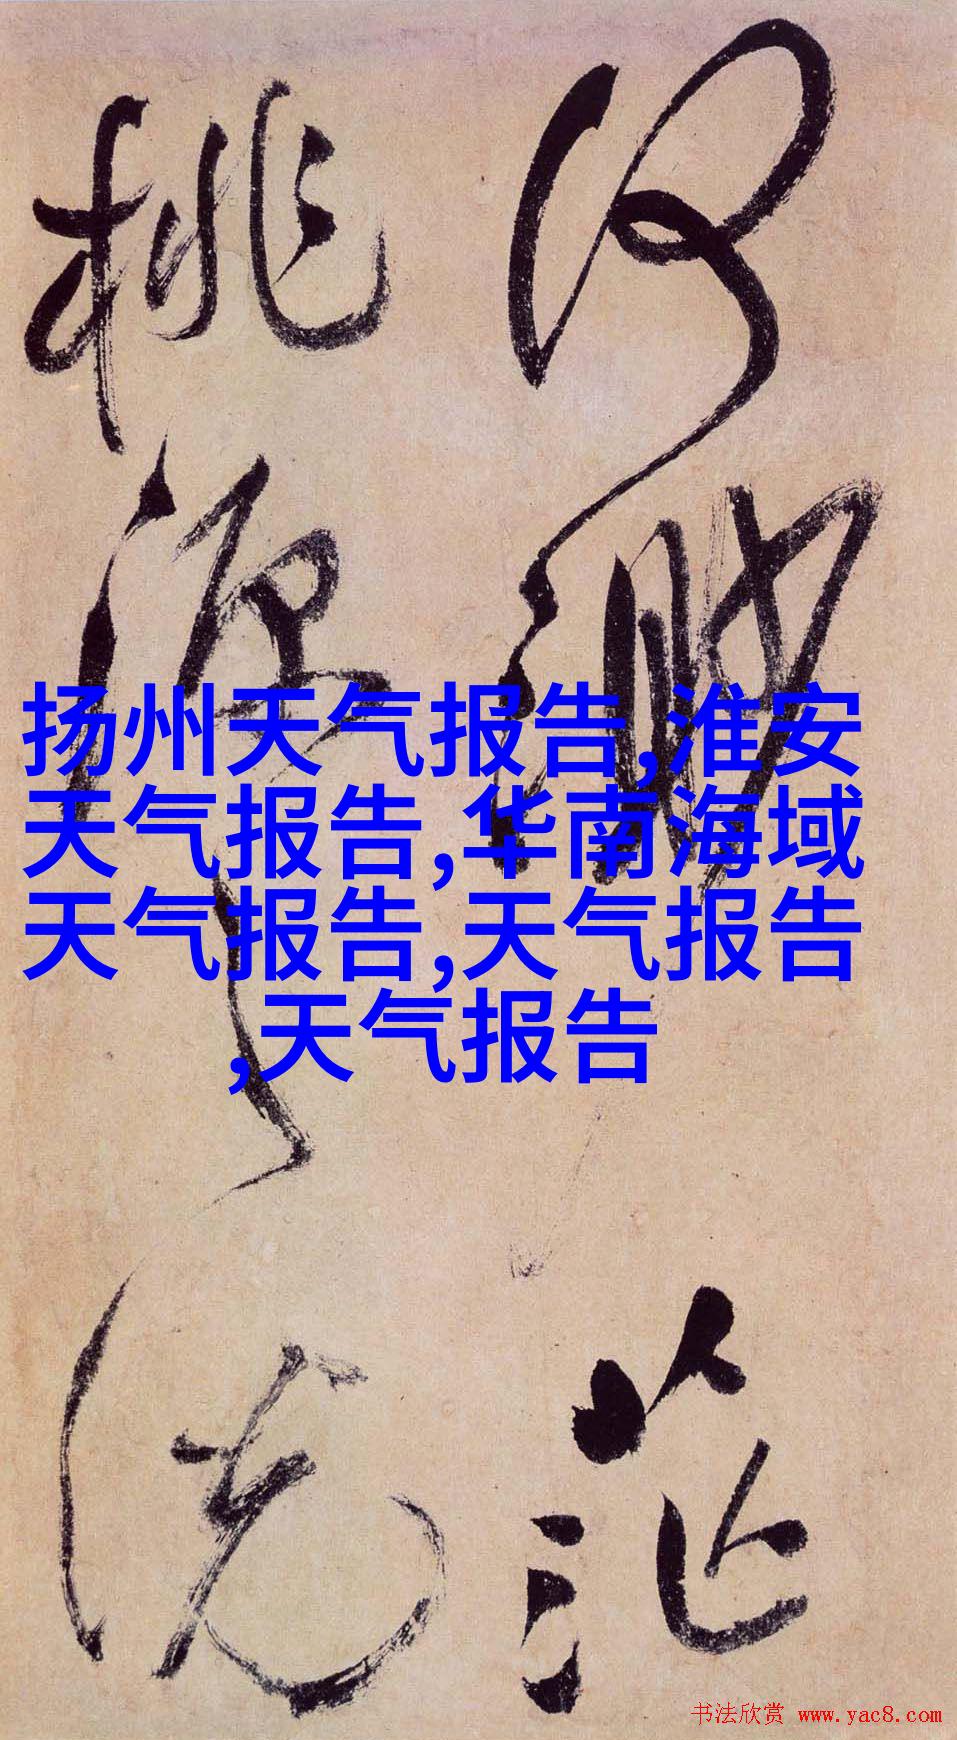 扬州天气报告,淮安
天气报告,华南海域
天气报告,天气报告
,天气报告
桃源
茫
书法欣赏 www.yac8.com